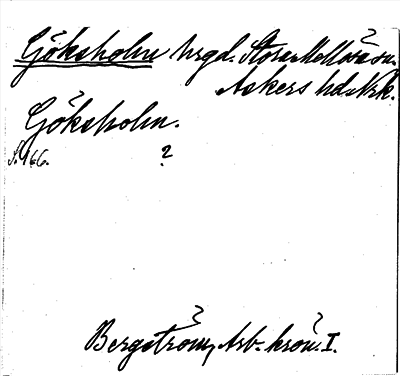 Göksholm hrgd. Stora Mellösa sn.
Askers hd. Nrk.
Göksholm.
S. 166. ?
Bergström, Arb. krön. I.